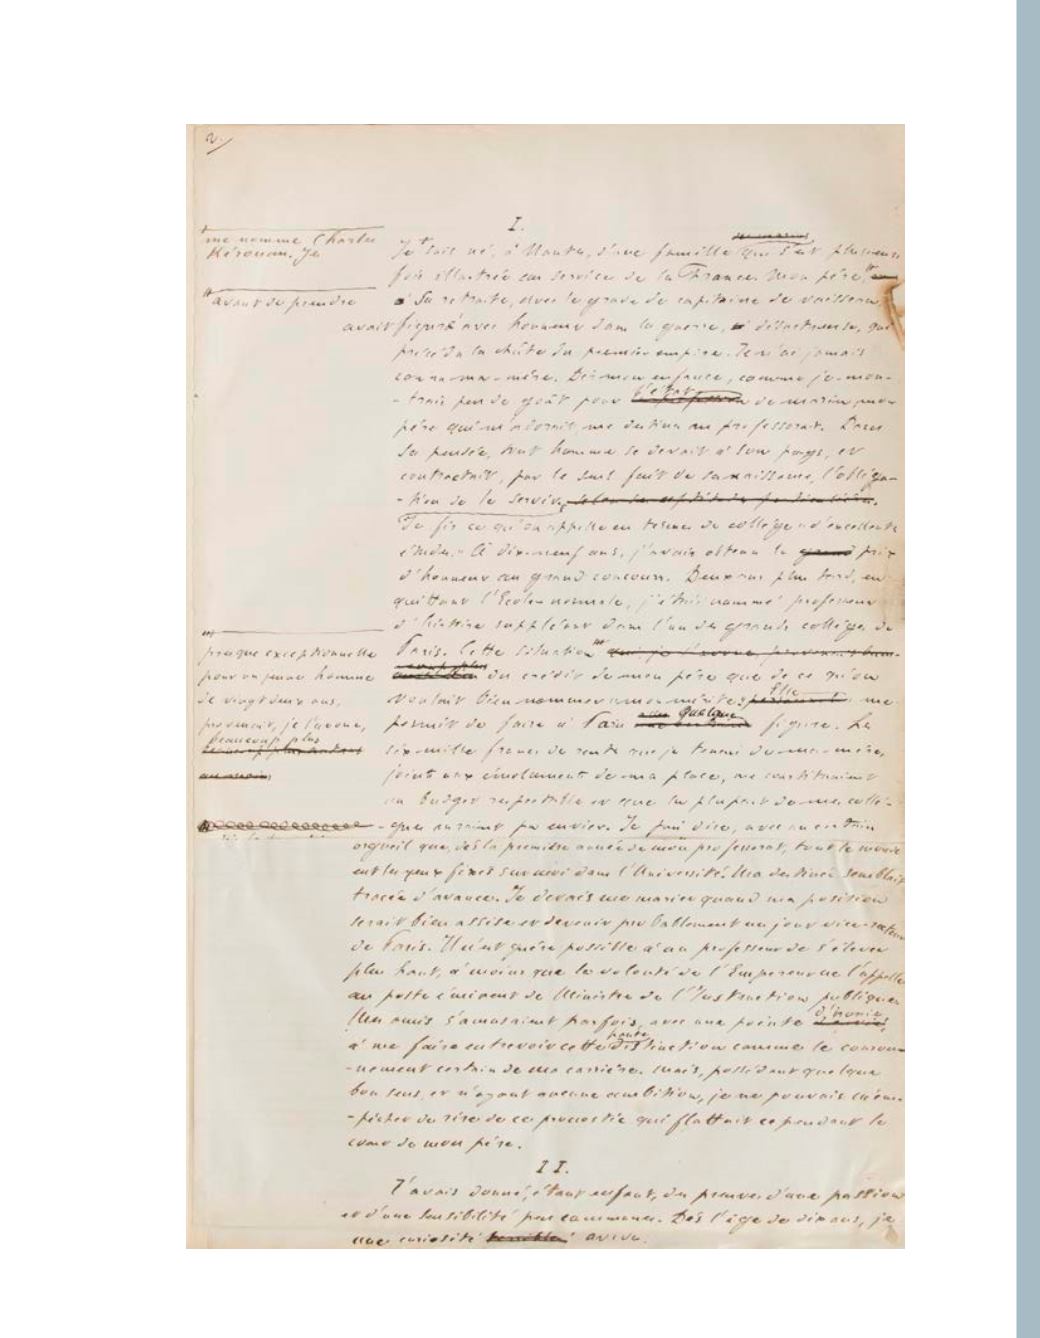 2.
I.
me nomme Charles
Kérouan. Je
Je suis né, à Nantes, d'une famille qui s'est plusieurs
fois illustrée au service de la France. Mon père,
avant de prendre
sa retraite, avec le grade de capitaine de vaisseau,
avait figuré avec honneur dans la guerre, désastreuse, qui
précéda la chute du premier empire. Je n'ai jamais
connu ma mère. Dès mon enfance, comme je mon-
-trais peu de goût pour l'état de marin, mon
père qui m'adorait, me destina au professorat. Dans
sa pensée, tout homme se devait à son pays, et
contractait, par le seul fait de sa naissance, l'obliga-
-tion de le servir, selon ses aptitudes particulières.
Je fis ce qu'on appelle en termes de collège « d'excellentes
études. » À dix-neuf ans, j'avais obtenu le grand prix
d'honneur au grand concours. Deux ans plus tard, en
quittant l'Ecole normale, j'étais nommé professeur
d'histoire suppléant dans l'un des grands collèges de
Paris. Cette situation qui, je l'avoue, provenait beau-
presque exceptionnelle
pour un jeune homme
de vingt deux ans,
provenait, je l'avoue,
beaucoup plus
coup plus
du crédit de mon père que de ce qu'on
voulait bien nommer mon mérite; Elle me
permit de faire à Paris quelque figure. Les
six mille francs de rente que je tenais de ma mère,
joints aux émoluments de ma place, me constituaient
un budget respectable et que la plupart de mes collè-
-gues auraient pu envier. Je puis dire, avec un certain
orgueil que, dès la première année de mon professorat, tout le monde
eut les yeux fixés sur moi dans l'Université. Ma destinée semblait
tracée d'avance. Je devais me marier quand ma position
serait bien assise et devenir probablement un jour vice-recteur
de Paris. Il n'est guère possible à un professeur de s'élever
plus haut, à moins que la volonté de l'Empereur ne l'appelle
au poste éminent de Ministre de l'Instruction publique.
Mes amis s'amusaient parfois, avec une pointe d'ironie
à me faire entrevoir cette haute distinction comme le couron-
-nement certain de ma carrière. Mais, possédant quelque
bon sens, et n'ayant aucune ambition, je ne pouvais m'em-
-pêcher de rire de ce pronostic qui flattait cependant le
cœur de mon père.
II.
J'avais donné, étant enfant, des preuves d'une passion
et d'une sensibilité peu communes. Dès l'âge de dix ans, je
une curiosité terrible avive.